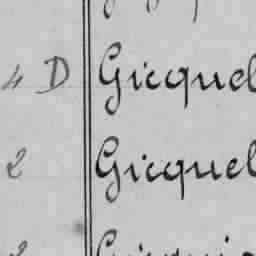 4 D Gicquel
2 Gicquel